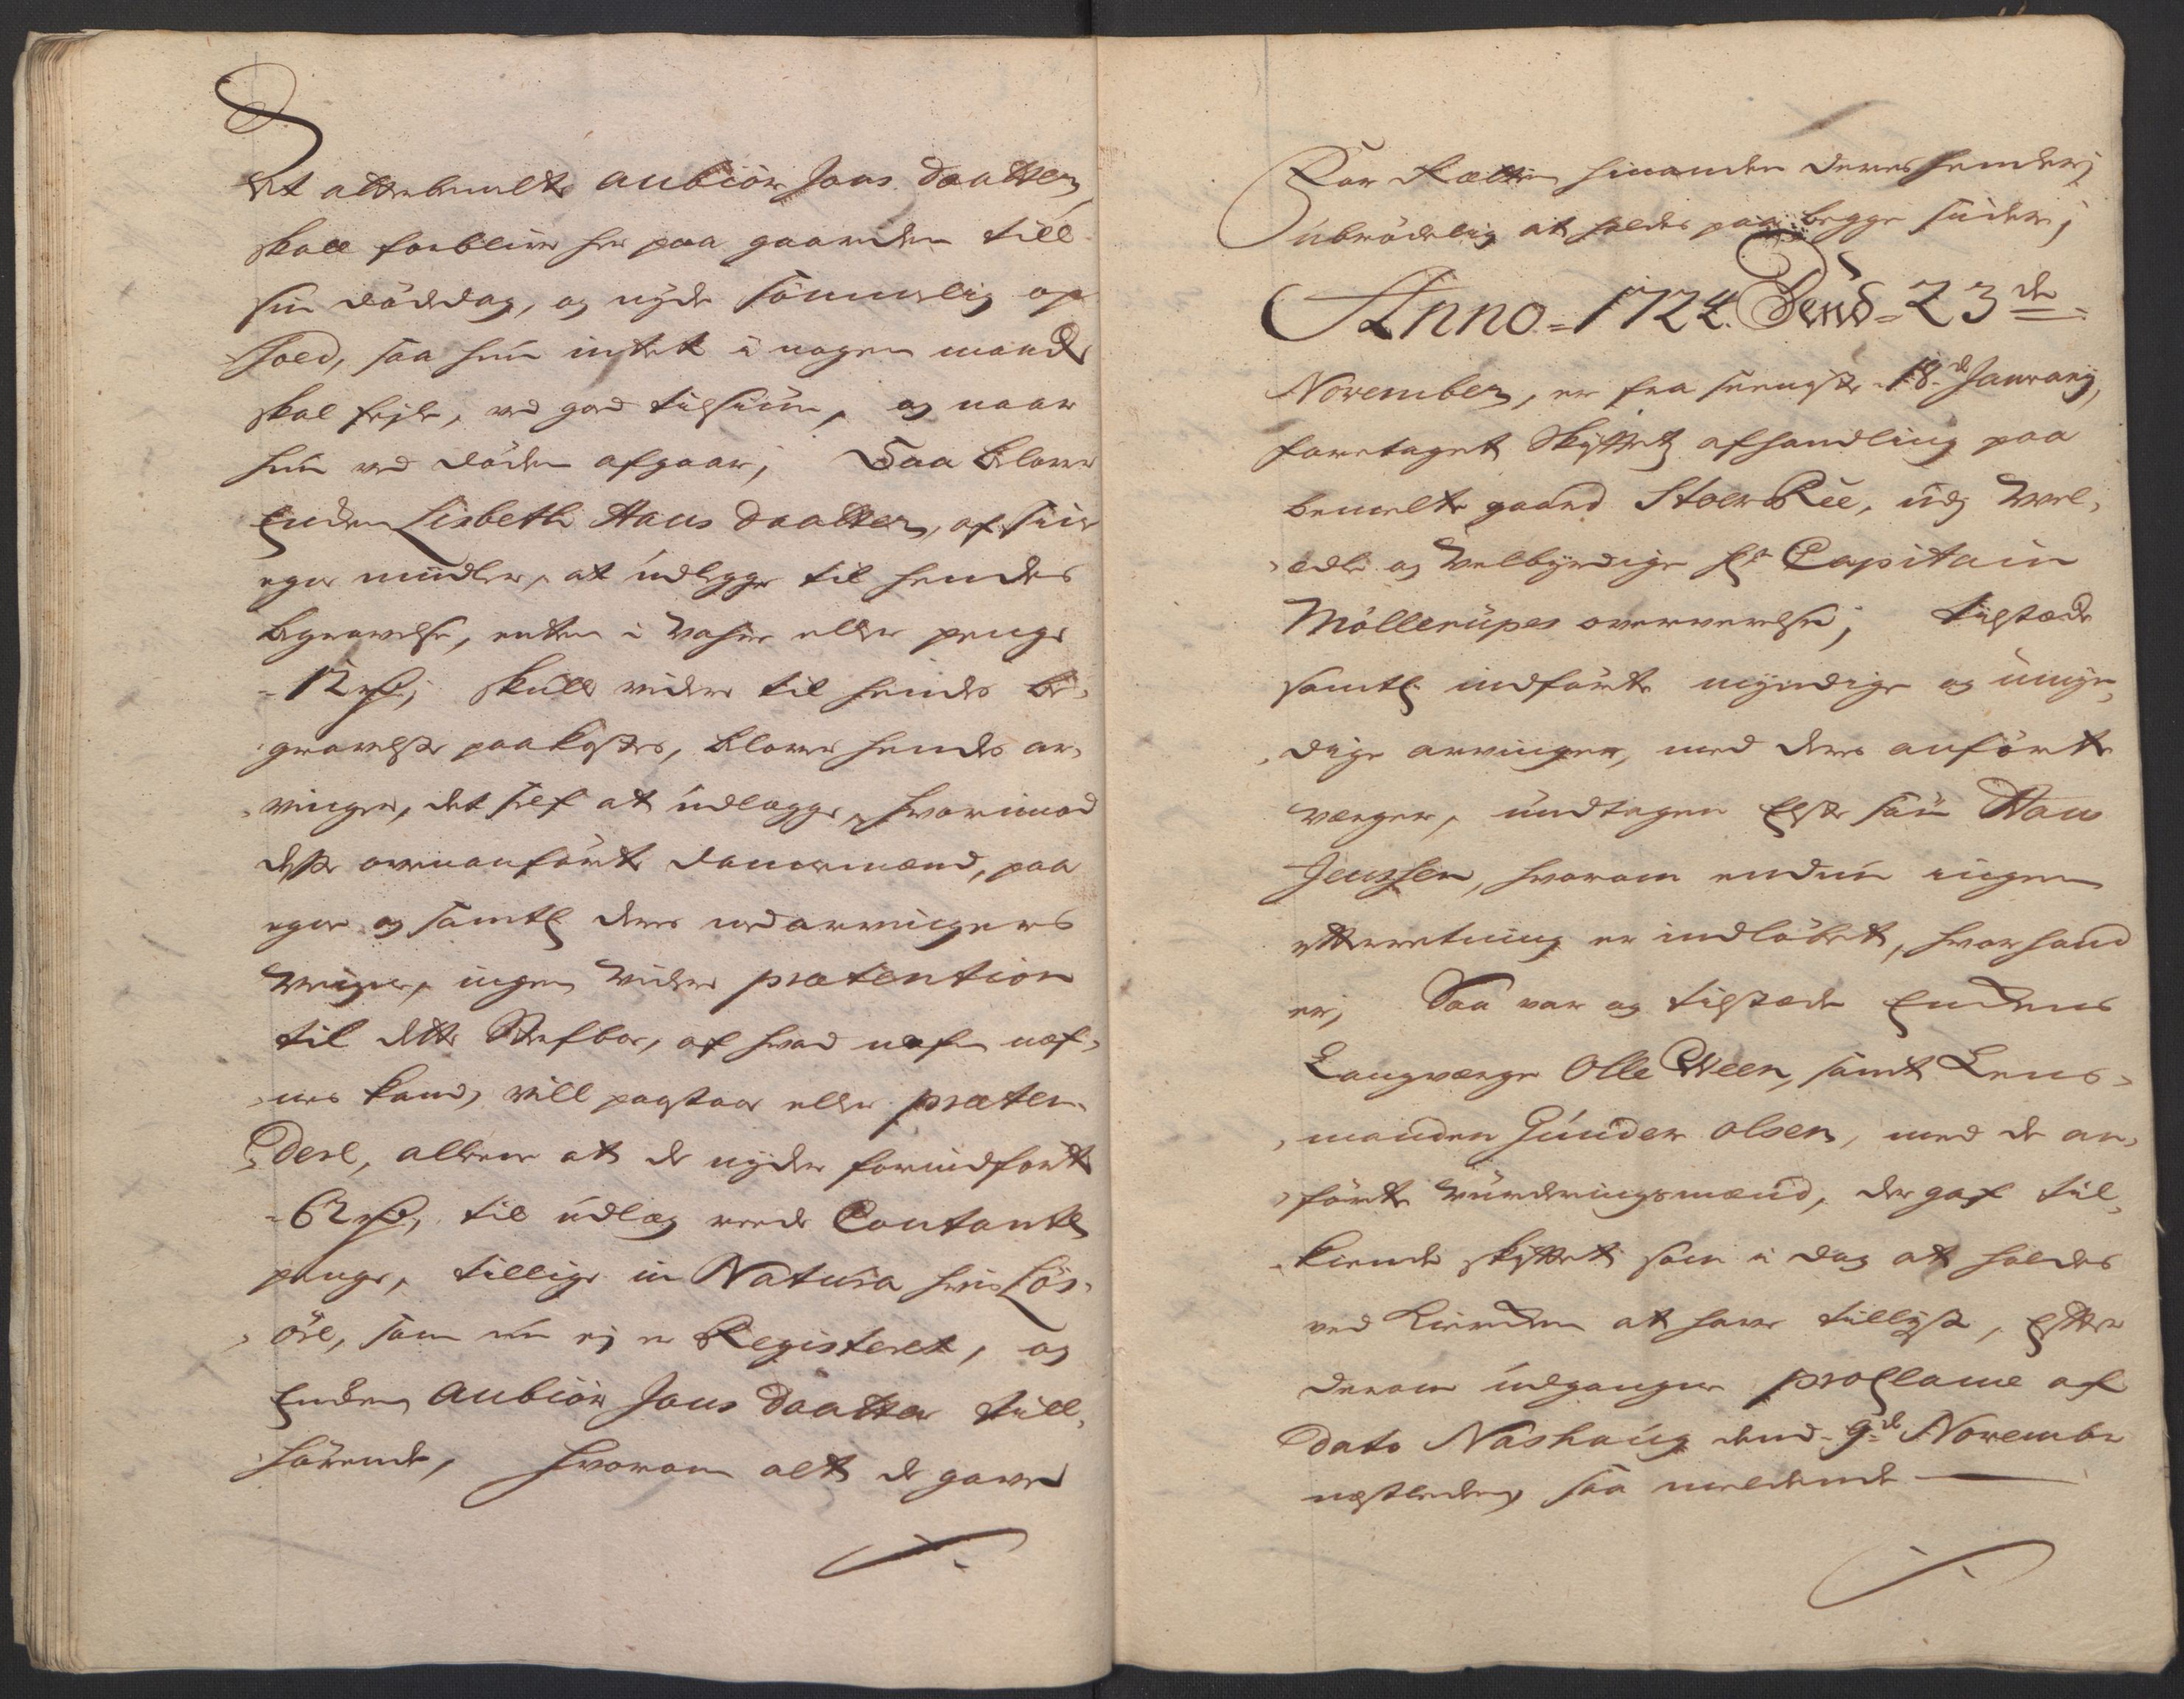 At attbemelte Aubiör Jans Daatter,
skall forblive her paa gaarden till
sin Dödedag, og nyde sömmelig op
hold, saa hun intet i nogen maade
skal fejle, ved god tilsiun, og naar
hun ved Döden afgaar; Saa Lover
Enchen Lisbeth Hans Daatter, af sine
egne midler, at udlegge til hendes
begravelse, enten i Vahre eller penge
12 rdr; skulle videre til hendes be,
gravelse paakostes, Lover hendes ar,
vinger, det self at udlegge, hvorimod
disse ovenanförte Dannemænd, paa
egne og samtl: deres medarvingers
Veigne, ingen Videre prætention
til dette Sterfboe, af hvad nafn nef,
nes kand, vill paastaae eller præten,
dere, allene at de nyder forindfört
62 rdr, til udlæg udi Contante
penge, tillige in Natura hvis Lös,
öre, som nu ej er Registeret, og
Enchen Aubiör Jans Daatter till,
hörende, hvorom alt de gaver
For Retten hinanden deres hender;
ubrödelig at holdes paa begge sider;
Anno 1724. Dend 23de
November, er fra seeneste 18de Januarij,
foretaget Skifftet afhandling paa
bemelte gaard StoerRee, udj Vel,
edle og Velbyrdige Hr Capitain
Möllerüpes oververelse; tilstæde
samtl: indförte myndige og umyn,
dige arvinger, med deres anförte
verger, undtagen Elste sön Hans
Jenssen, hvorom endnu ingen
effterretning er indlöbet, hvor hand
er; Saa var og tilstæde Enchens
Laugverge Olle Ween, samt Lens,
manden Gunder Olsen, med de an,
förte Vurderingsmænd, der gaf til,
kiende skifftet som i dag at holdes
ved Kirchen at have tillyst, Effter
derom udgangne proclame af
Dato Nashaug dend 9de November
nestleden, saa meldende